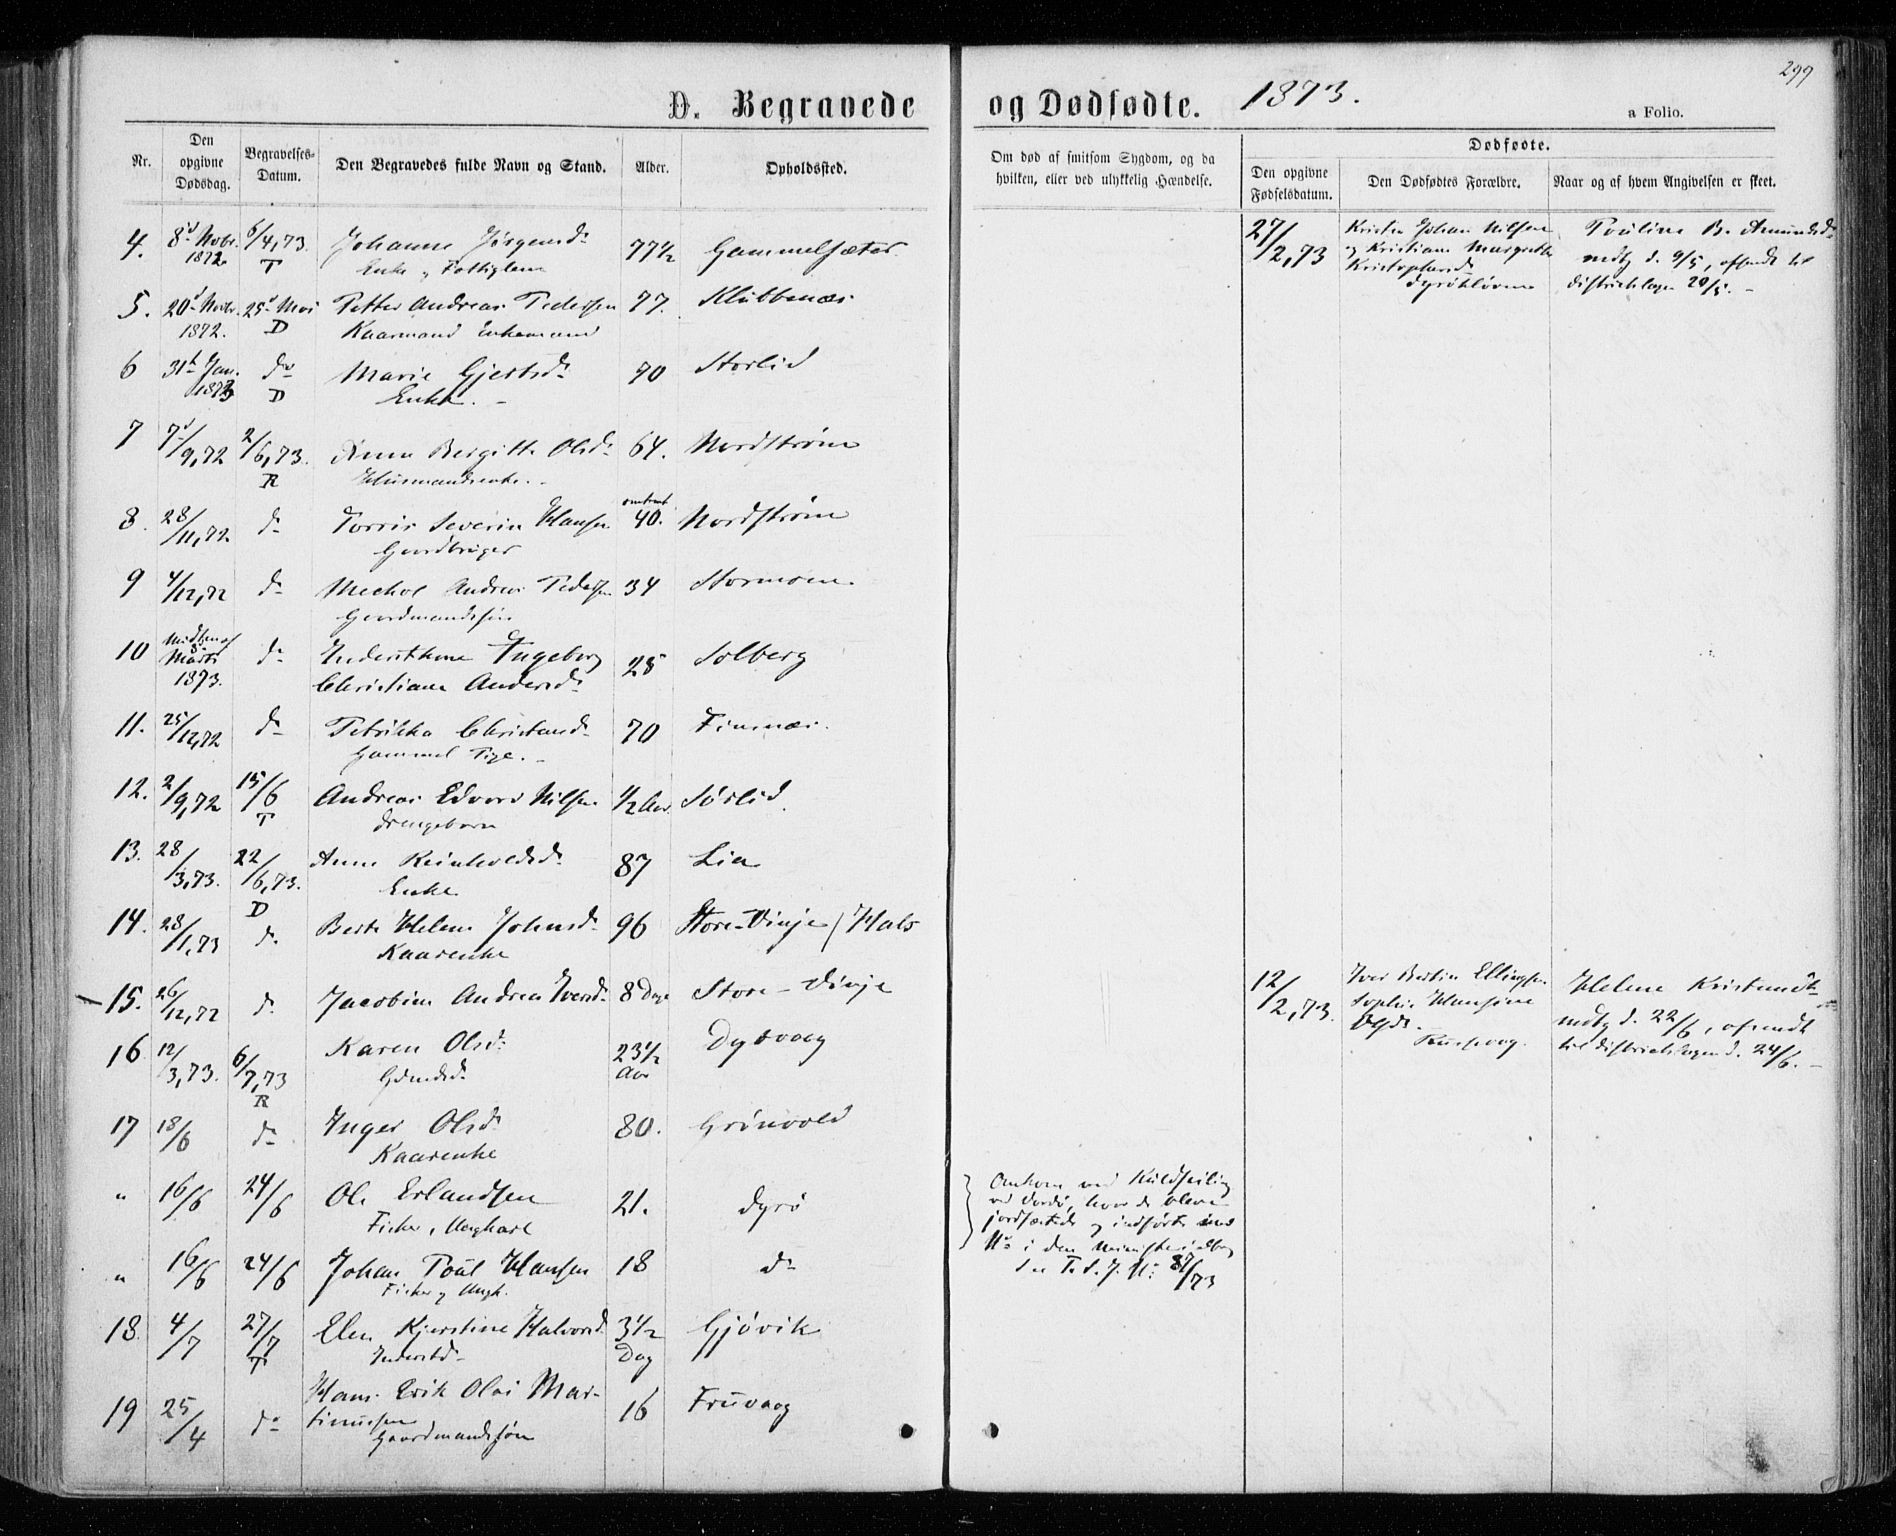 299
D. Begravede og Dødfødte. 1873.
a Folio.
Nr.
Den opgivne Dødsdag.
Begravelses-Datum.
Den Begravedes fulde Navn og Stand.
Alder.
Opholdssted.
Om død af smitsom Sygdom, og da hvilken, eller ved ulykkelig Hændelse.
Dødfødte.
Den opgivne Fødselsdatum.
Den Dødfødtes Forældre.
Naar og af hvem Angivelsen er skeet.
4. 8d Novbr. 1872 6/4,73. T Johanne Jørgensdr 77 1/2 Gammelsæter
Enke, Fattiglem
27/2,73 Kristen Johan Nilsen
og Kristiane Margrethe
Kristophersdr
Dyrøkløven
Pauline B. Amundsdr
medg d. 9/5, afsendt til
districtslægen 20/5. –
5. 20d Novbr. 1872. 25d Mai D Petter Andreas Pedersen 77. Klubbenæs
Kaarmand Enkemand
6 31te Jan. 1873 do D Marie Gjertsdr 90 Storlid
Enke. –
7 7/9,72 2/6,73. R Anna Bergitte Olsdr 64. Nordstrøm
Husmandsenke. –
8. 28/11,72 do Torris Severin Hansen omtrent 40. Nordstrøm
Gaardbruger
9 4/12,72 do Mechol Andreas Pedersen 34 Stormoen.
Gaardmandssøn
10 Midten af Marts 1873. do Inderstkone Ingeborg 25 Solberg
Christiane Andersdr
11. 25/12,72 do Petrikka Christensdr 70 Finnnæs.
Gammel Pige. –
12. 2/9,72 15/6 T Andreas Edvard Nilsen 1/2 Aar Sørlid
Drengebarn
13. 28/3,73. 22/6,73. D Anne Reinholdsdr 87 Lia
Enke
14. 28/1,73 do Berte Helene Johnsdr 96 Store-Vinje / Hals
Kaarenke
15. 26/12,72 do Jacobine Andrea Iversdr 8 Dage Store-Vinje
12/2,73. Iver Bertin Ellingsen
Sophie Hansine
Olsdr.
Helene Kristensdr
medg d. 22/6, afsendt
til districtslægen d. 24/6. –
16 12/3,73. 6/7,73 R Karen Olsdr 23 1/2 Aar Dyrvaag
Gdmdsdr
17 18/6 do Inger Olsdr 80. Grønvold
Kaarenke
" 16/6 24/6 Ole Erlandsen 21. Dyrø
Fisker, Ungkarl
Omkom ved Kuldseiling
ved Vardø, hvor de bleve
jordfæstede og indførte med
No i den Ministerialbog
" 16/6 24/6 Johan Poul Hansen 18 do
Fisker og Ungk.
87/73
18. 4/7 27/7 T Elen Kjerstine Halvorsdr 3 1/2 Dag Gjøvik
Inderstdr
19 25/4 do Hans Erik Olai Mar- 16 Fruvaag
tinussen
Gaardmandssøn